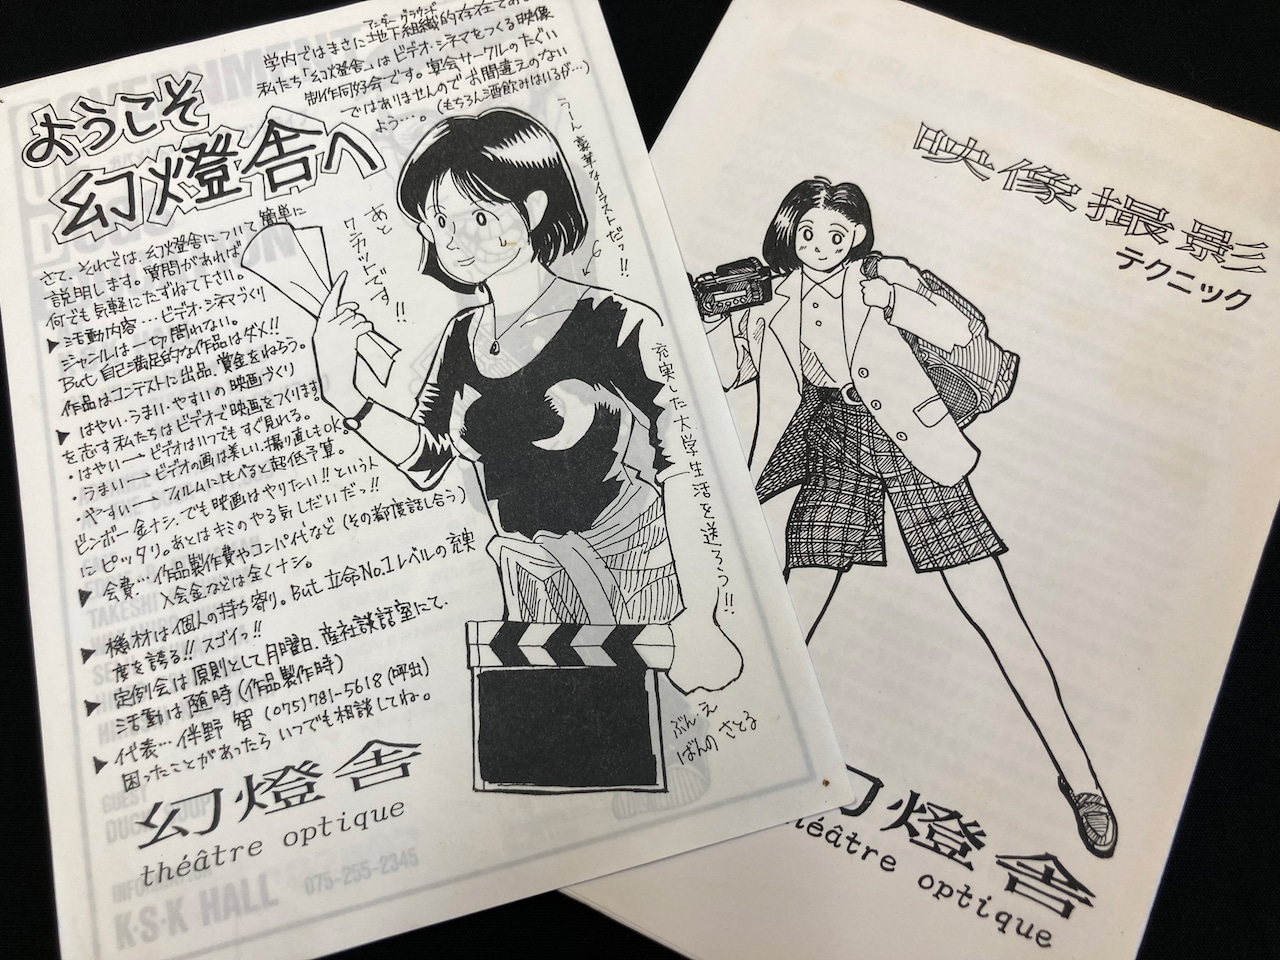 学内ではまさに地下組織的存在で
アンダーグラウンド
私たち「幻燈舎」はビデオ・シネマをつくる映像
制作同好会です。宴会サークルのたぐい
ではありませんのでお間違えのない
よう…。(もちろん酒飲みはいるが…)
ようこそ
幻燈舎へ
さて、それでは、幻燈舎について簡単に
説明します。質問があれば
何でも気軽にたずねて下さい。
▶活動内容…ビデオ・シネマづくり
ジャンルは一切問わない。
But 自己満足的な作品はダメ!!
作品はコンテストに出品、賞金をねらう。
▶はやい・うまい・やすいの映画づくり
を志す私たちはビデオで映画をつくります。
・はやい→ビデオはいつでもすぐ見れる。
・うまい→ビデオの画は美しい、撮り直しもOK。
・やすい→フィルムにくらべると超低予算。
ビンボー金ナシ、でも映画はやりたい!!という人
にピッタリ。あとはキミのやる気しだいだっ!!
▶会費…作品製作費やコンパ代など(その都度話し合う)
入会金などは全くナシ。
▶機材は個人の持ち寄り。But 立命No.1レベルの充実
度を誇る!!スゴイっ!!
▶定例会は原則として月曜日、産社談話室にて。
活動は随時(作品製作時)
▶代表…伴野 智 (075)781-5618(呼出)
困ったことがあったらいつでも相談してね。
幻燈舎
théâtre optique
あと
ワンカットです!!
うーん豪華なイラストだっ!!
充実した大学生活を送ろう!!
ぶん・え
ばんの さとる
INFORMATION
K・S・K HALL 075-255-2345
映像撮影
テクニック
幻燈舎
théâtre optique